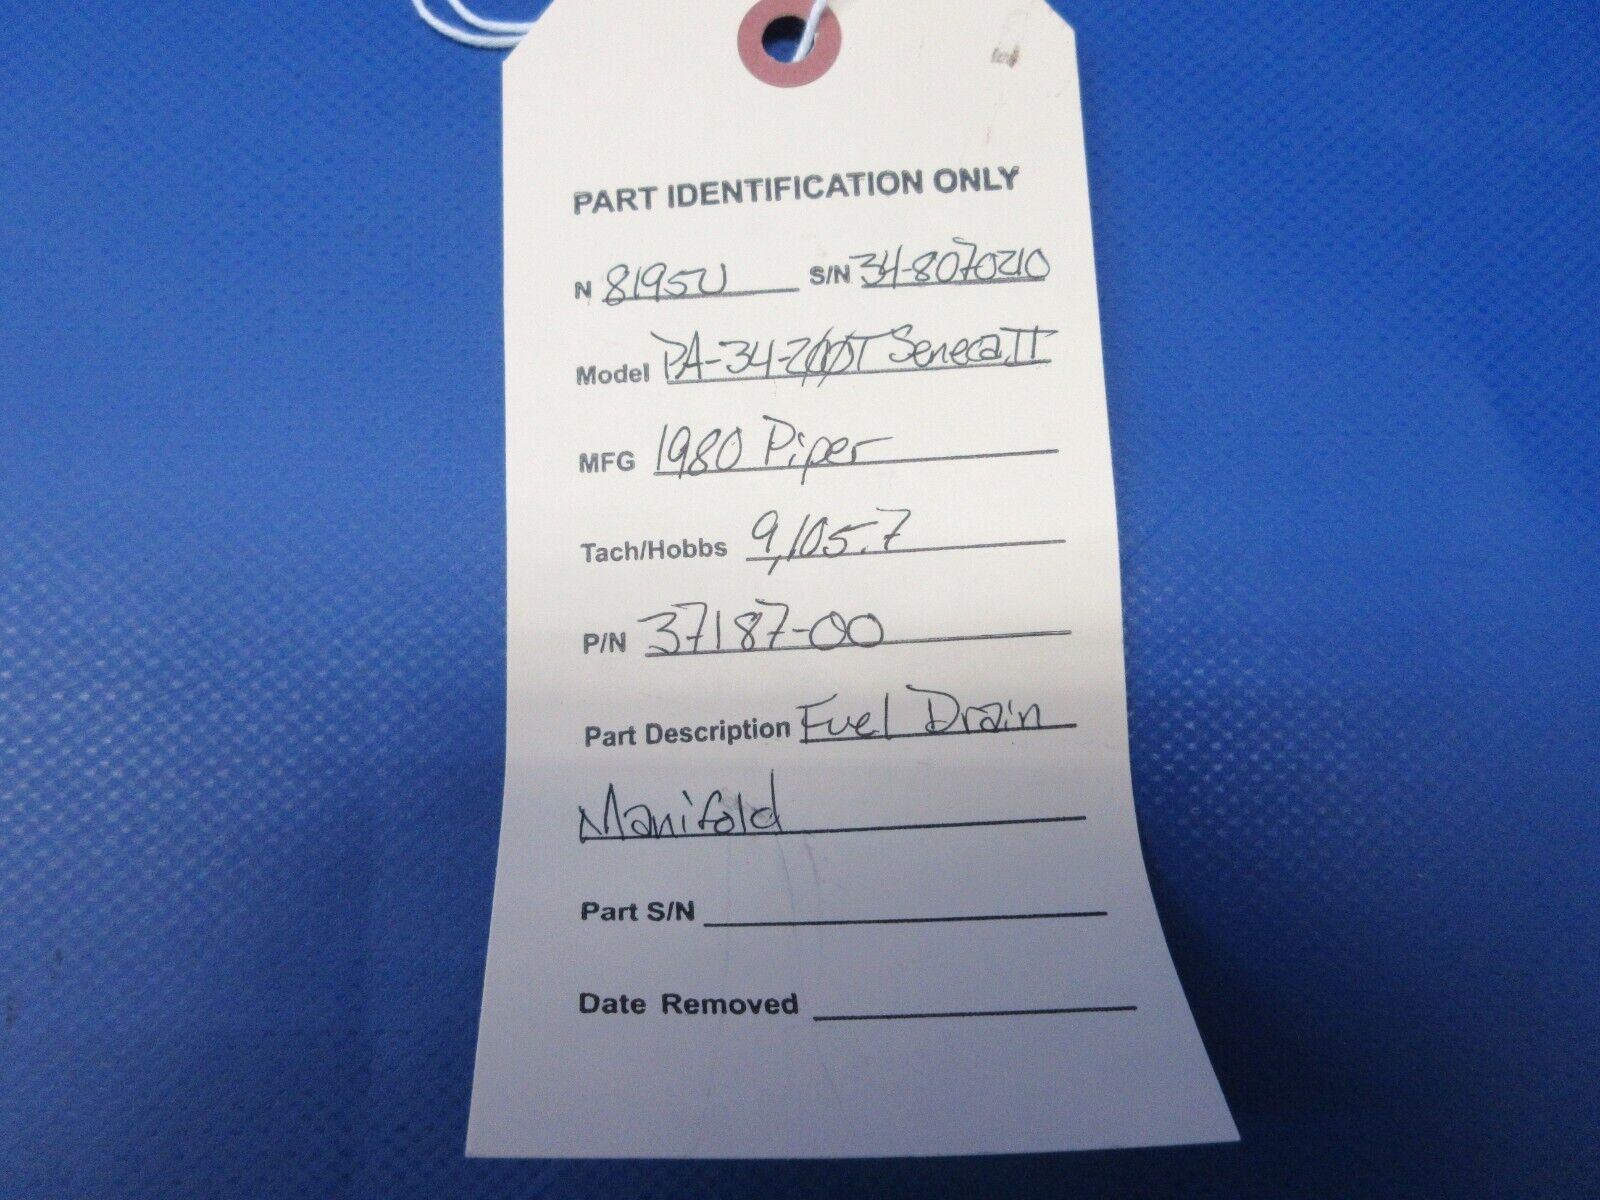 PART IDENTIFICATION ONLY
N 8195U S/N 34-8070210
Model PA-34-200T Seneca II
MFG 1980 Piper
Tach/Hobbs 9,105.7
P/N 37187-00
Part Description Fuel Drain
Manifold
Part S/N
Date Removed